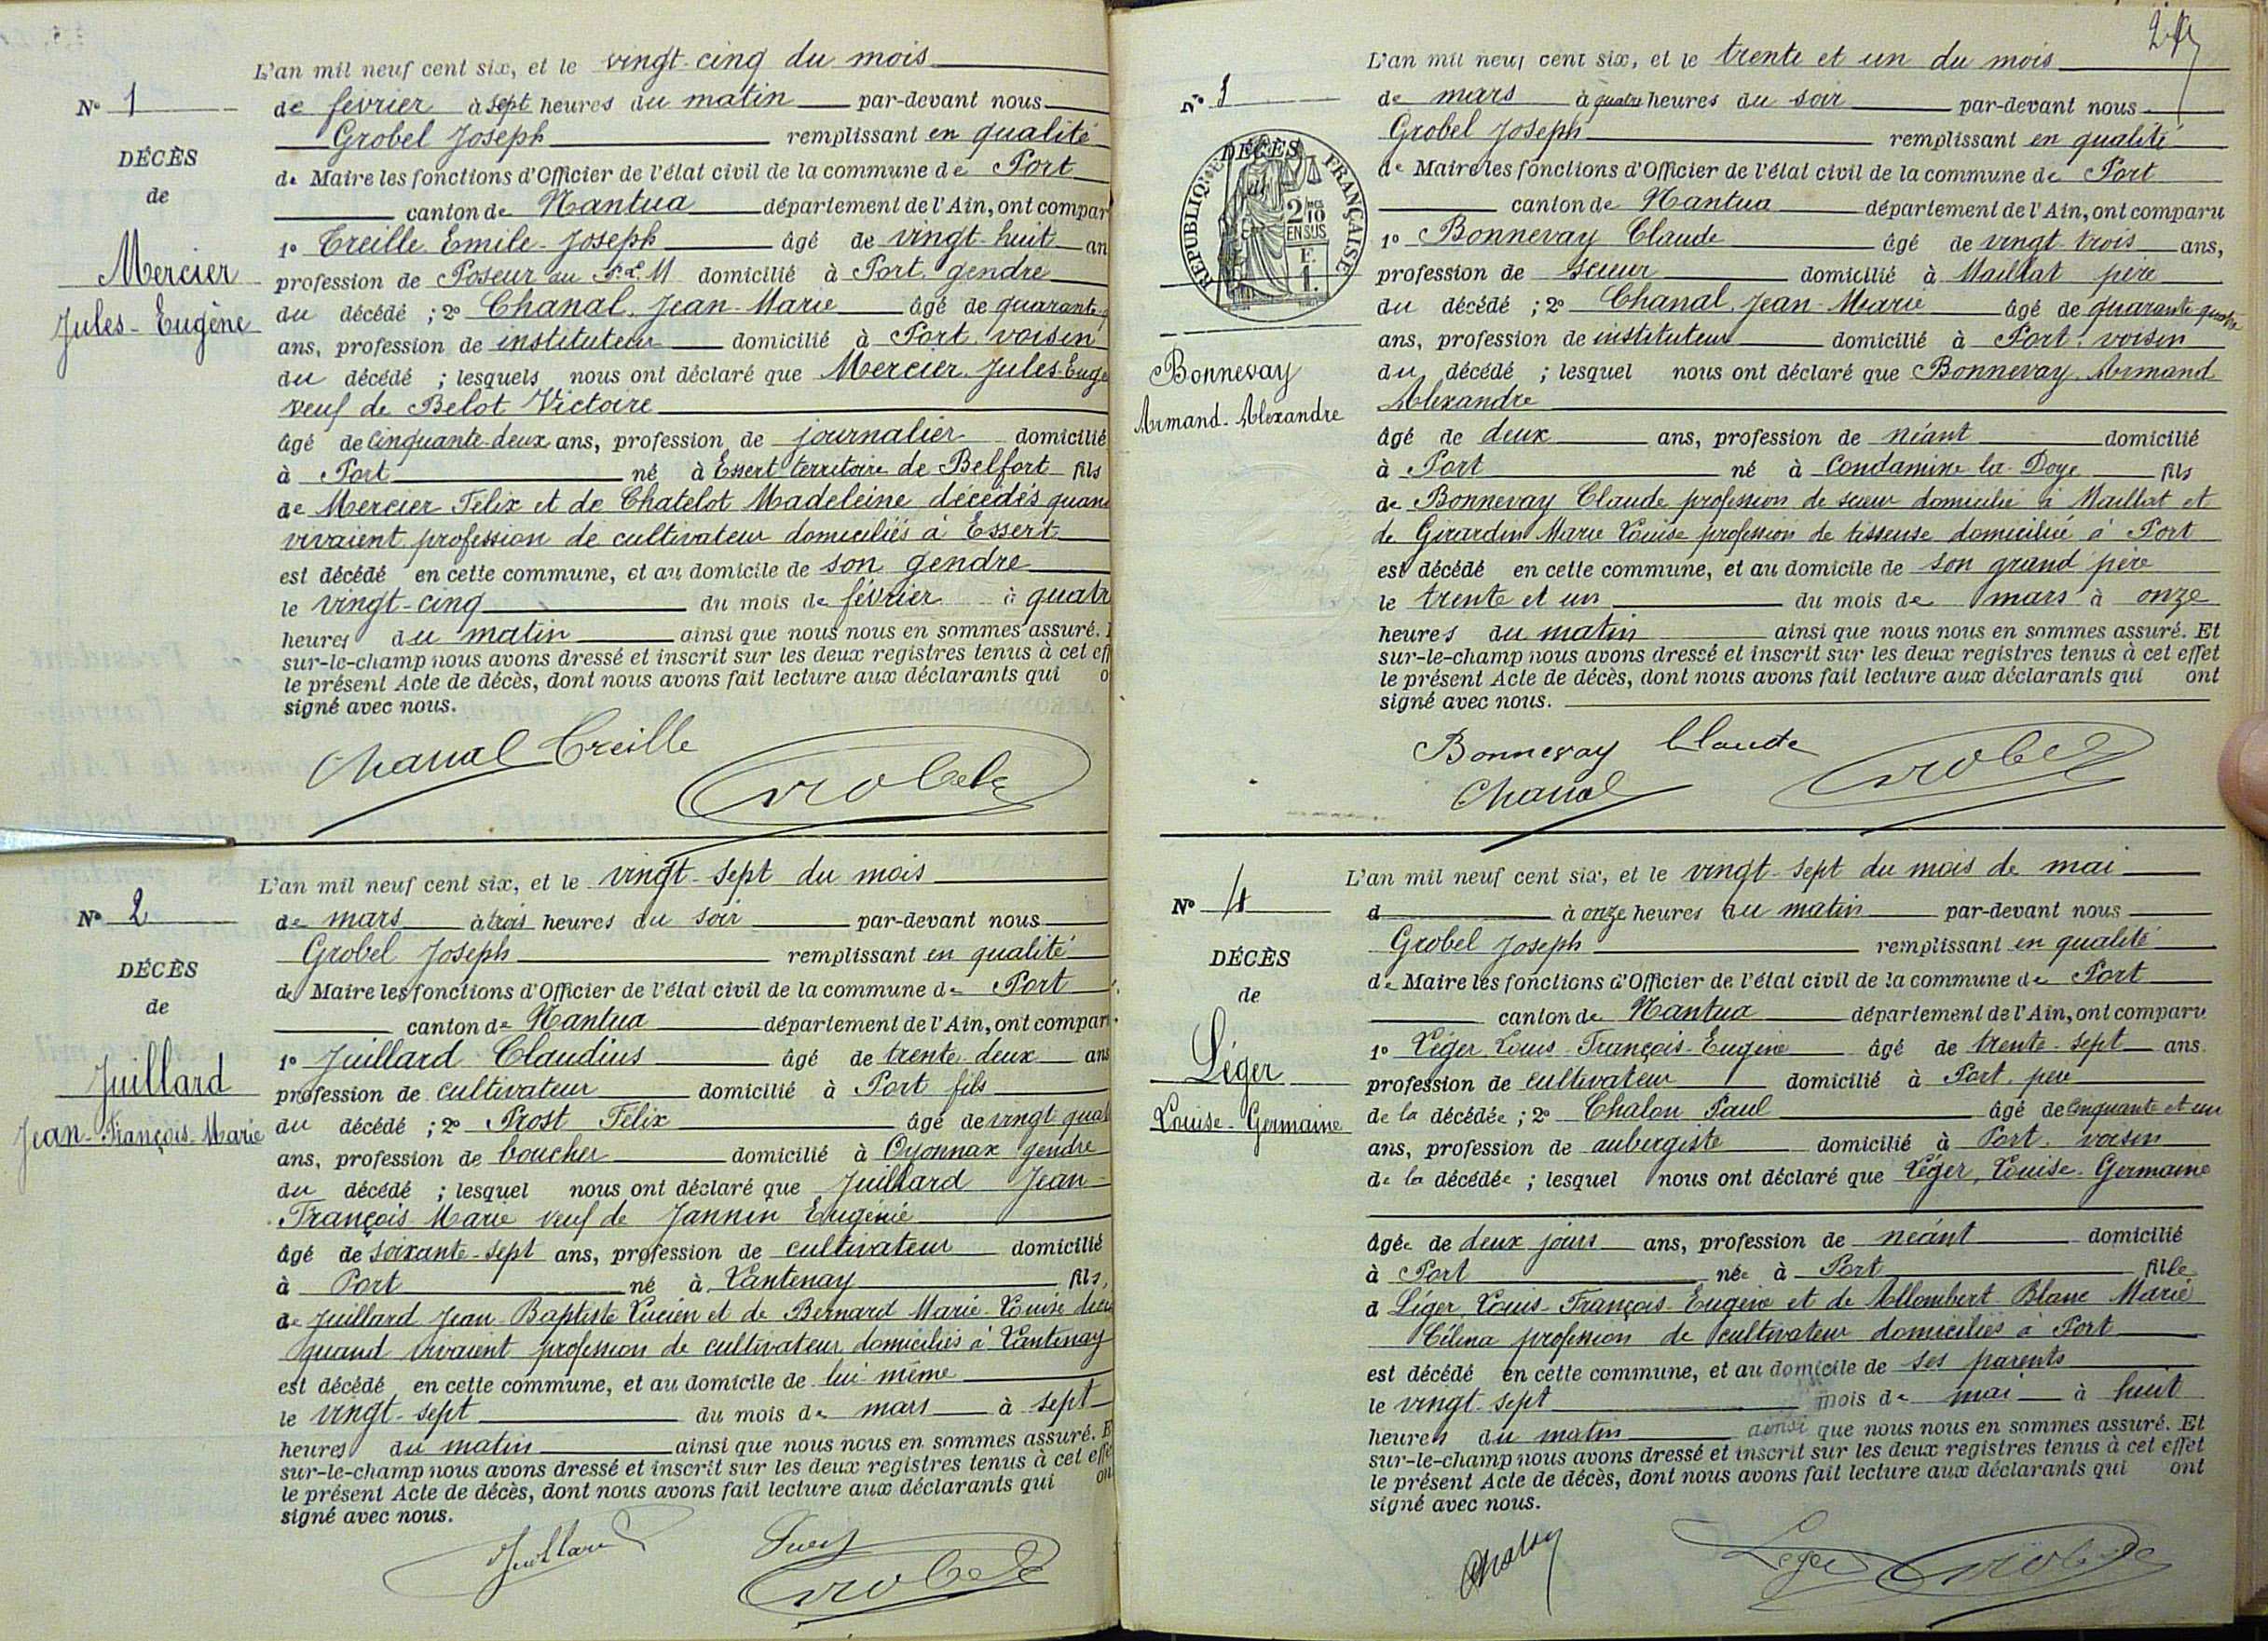 L'an mil neuf cent six, et le vingt-cinq du mois
N° 1
de février à sept heures du matin par-devant nous
Grobel Joseph remplissant en qualité
DÉCÈS
de Maire les fonctions d'Officier de l'état civil de la commune de Port
de
canton de Nantua département de l'Ain, ont compar
1° Treille Emile-Joseph âgé de vingt-huit an
Mercier
profession de Poseur au P.L.M domicilié à Port. gendre
Jules-Eugène
du décédé ; 2° Chanal. Jean-Marie âgé de quarante-q
ans, profession de instituteur domicilié à Port. voisin
du décédé ; lesquels nous ont déclaré que Mercier. Jules-Eugè
veuf de Belot Victoire
âgé de cinquante-deux ans, profession de journalier domicilié
à Port né à Essert territoire de Belfort fils
de Mercier Felix et de Chatelot Madeleine décédés quand
vivaient profession de cultivateur domiciliés à Essert
est décédé en cette commune, et au domicile de son gendre
le vingt-cinq du mois de février à quatr
heures du matin ainsi que nous nous en sommes assuré.
sur-le-champ nous avons dressé et inscrit sur les deux registres tenus à cet eff
le présent Acte de décès, dont nous avons fait lecture aux déclarants qui o
signé avec nous.
Chanal Treille
Grobel
L'an mil neuf cent six, et le vingt-sept du mois
N° 2
de mars à trois heures du soir par-devant nous
Grobel Joseph remplissant en qualité
DÉCÈS
de Maire les fonctions d'Officier de l'état civil de la commune de Port
de
canton de Nantua département de l'Ain, ont compar
1° Juillard Claudius âgé de trente-deux ans
Juillard
profession de cultivateur domicilié à Port fils
Jean-François-Marie
du décédé ; 2° Prost Félix âgé de vingt quat
ans, profession de boucher domicilié à Oyonnax gendre
du décédé ; lesquel nous ont déclaré que Juillard Jean-
François-Marie veuf de Jannin Eugénie
âgé de soixante-sept ans, profession de cultivateur domicilié
à Port né à Lantenay fils,
de Juillard Jean-Baptiste Lucien et de Bernard Marie-Louise
quand vivaient profession de cultivateur domiciliés à Lantenay
est décédé en cette commune, et au domicile de lui même
le vingt-sept du mois de mars à sept
heures du matin ainsi que nous nous en sommes assuré. E
sur-le-champ nous avons dressé et inscrit sur les deux registres tenus à cet effe
le présent Acte de décès, dont nous avons fait lecture aux déclarants qui on
signé avec nous.
Juillard
Grobel
L'an mil neuf cent six, et le trente et un du mois
N°
de mars à quatre heures du soir par-devant nous
Grobel Joseph remplissant en qualité
DÉCÈS
RÉPUBLIQUE FRANÇAISE
2 10 EN SUS
de Maire les fonctions d'Officier de l'état civil de la commune de Port
canton de Nantua département de l'Ain, ont comparu
1° Bonnevay Claude âgé de vingt-trois ans,
profession de scieur domicilié à Maillat père
du décédé ; 2° Chanal. Jean-Marie âgé de quarante-quatre
ans, profession de instituteur domicilié à Port. voisin
Bonnevay
Armand-Alexandre
du décédé ; lesquel nous ont déclaré que Bonnevay. Armand
Alexandre
âgé de deux ans, profession de néant domicilié
à Port né à Condamine la Doye fils
de Bonnevay Claude profession de scieur domicilié à Maillat et
de Girardin Marie Louise profession de tisseuse domiciliée à Port
est décédé en cette commune, et au domicile de son grand père
le trente et un du mois de mars à onze
heures du matin ainsi que nous nous en sommes assuré. Et
sur-le-champ nous avons dressé et inscrit sur les deux registres tenus à cet effet
le présent Acte de décès, dont nous avons fait lecture aux déclarants qui ont
signé avec nous.
Bonnevay Claude
Chanal
Grobel
L'an mil neuf cent six, et le vingt-sept du mois de mai
N° 4
d à onze heures du matin par-devant nous
Grobel Joseph remplissant en qualité
DÉCÈS
de Maire les fonctions d'Officier de l'état civil de la commune de Port
de
canton de Nantua département de l'Ain, ont comparu
1° Léger Louis-François-Eugène âgé de trente-sept ans
Léger
profession de cultivateur domicilié à Port. père
Louise-Germaine
de la décédée ; 2° Chalon Paul âgé de cinquante et un
ans, profession de aubergiste domicilié à Port. voisin
de la décédée ; lesquel nous ont déclaré que Léger, Louise-Germaine
âgée de deux jours ans, profession de néant domicilié
à Port née à Port fille
d Léger Louis-François-Eugène et de Allombert Blanc Marie
Célina profession de cultivateur domiciliés à Port
est décédé en cette commune, et au domicile de ses parents
le vingt-sept mois de mai à huit
heures du matin ainsi que nous nous en sommes assuré. Et
sur-le-champ nous avons dressé et inscrit sur les deux registres tenus à cet effet
le présent Acte de décès, dont nous avons fait lecture aux déclarants qui ont
signé avec nous.
Chalon
Leger Grobel